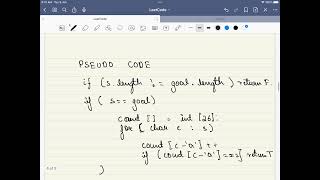 LeetCode
PSEUDO CODE
if (s.length != goal.length) return F.
if (s == goal)
count [] = int [26].
for { char c : s)
count [c-'a'] ++
if (count [c-'a'] ==2) return T
}